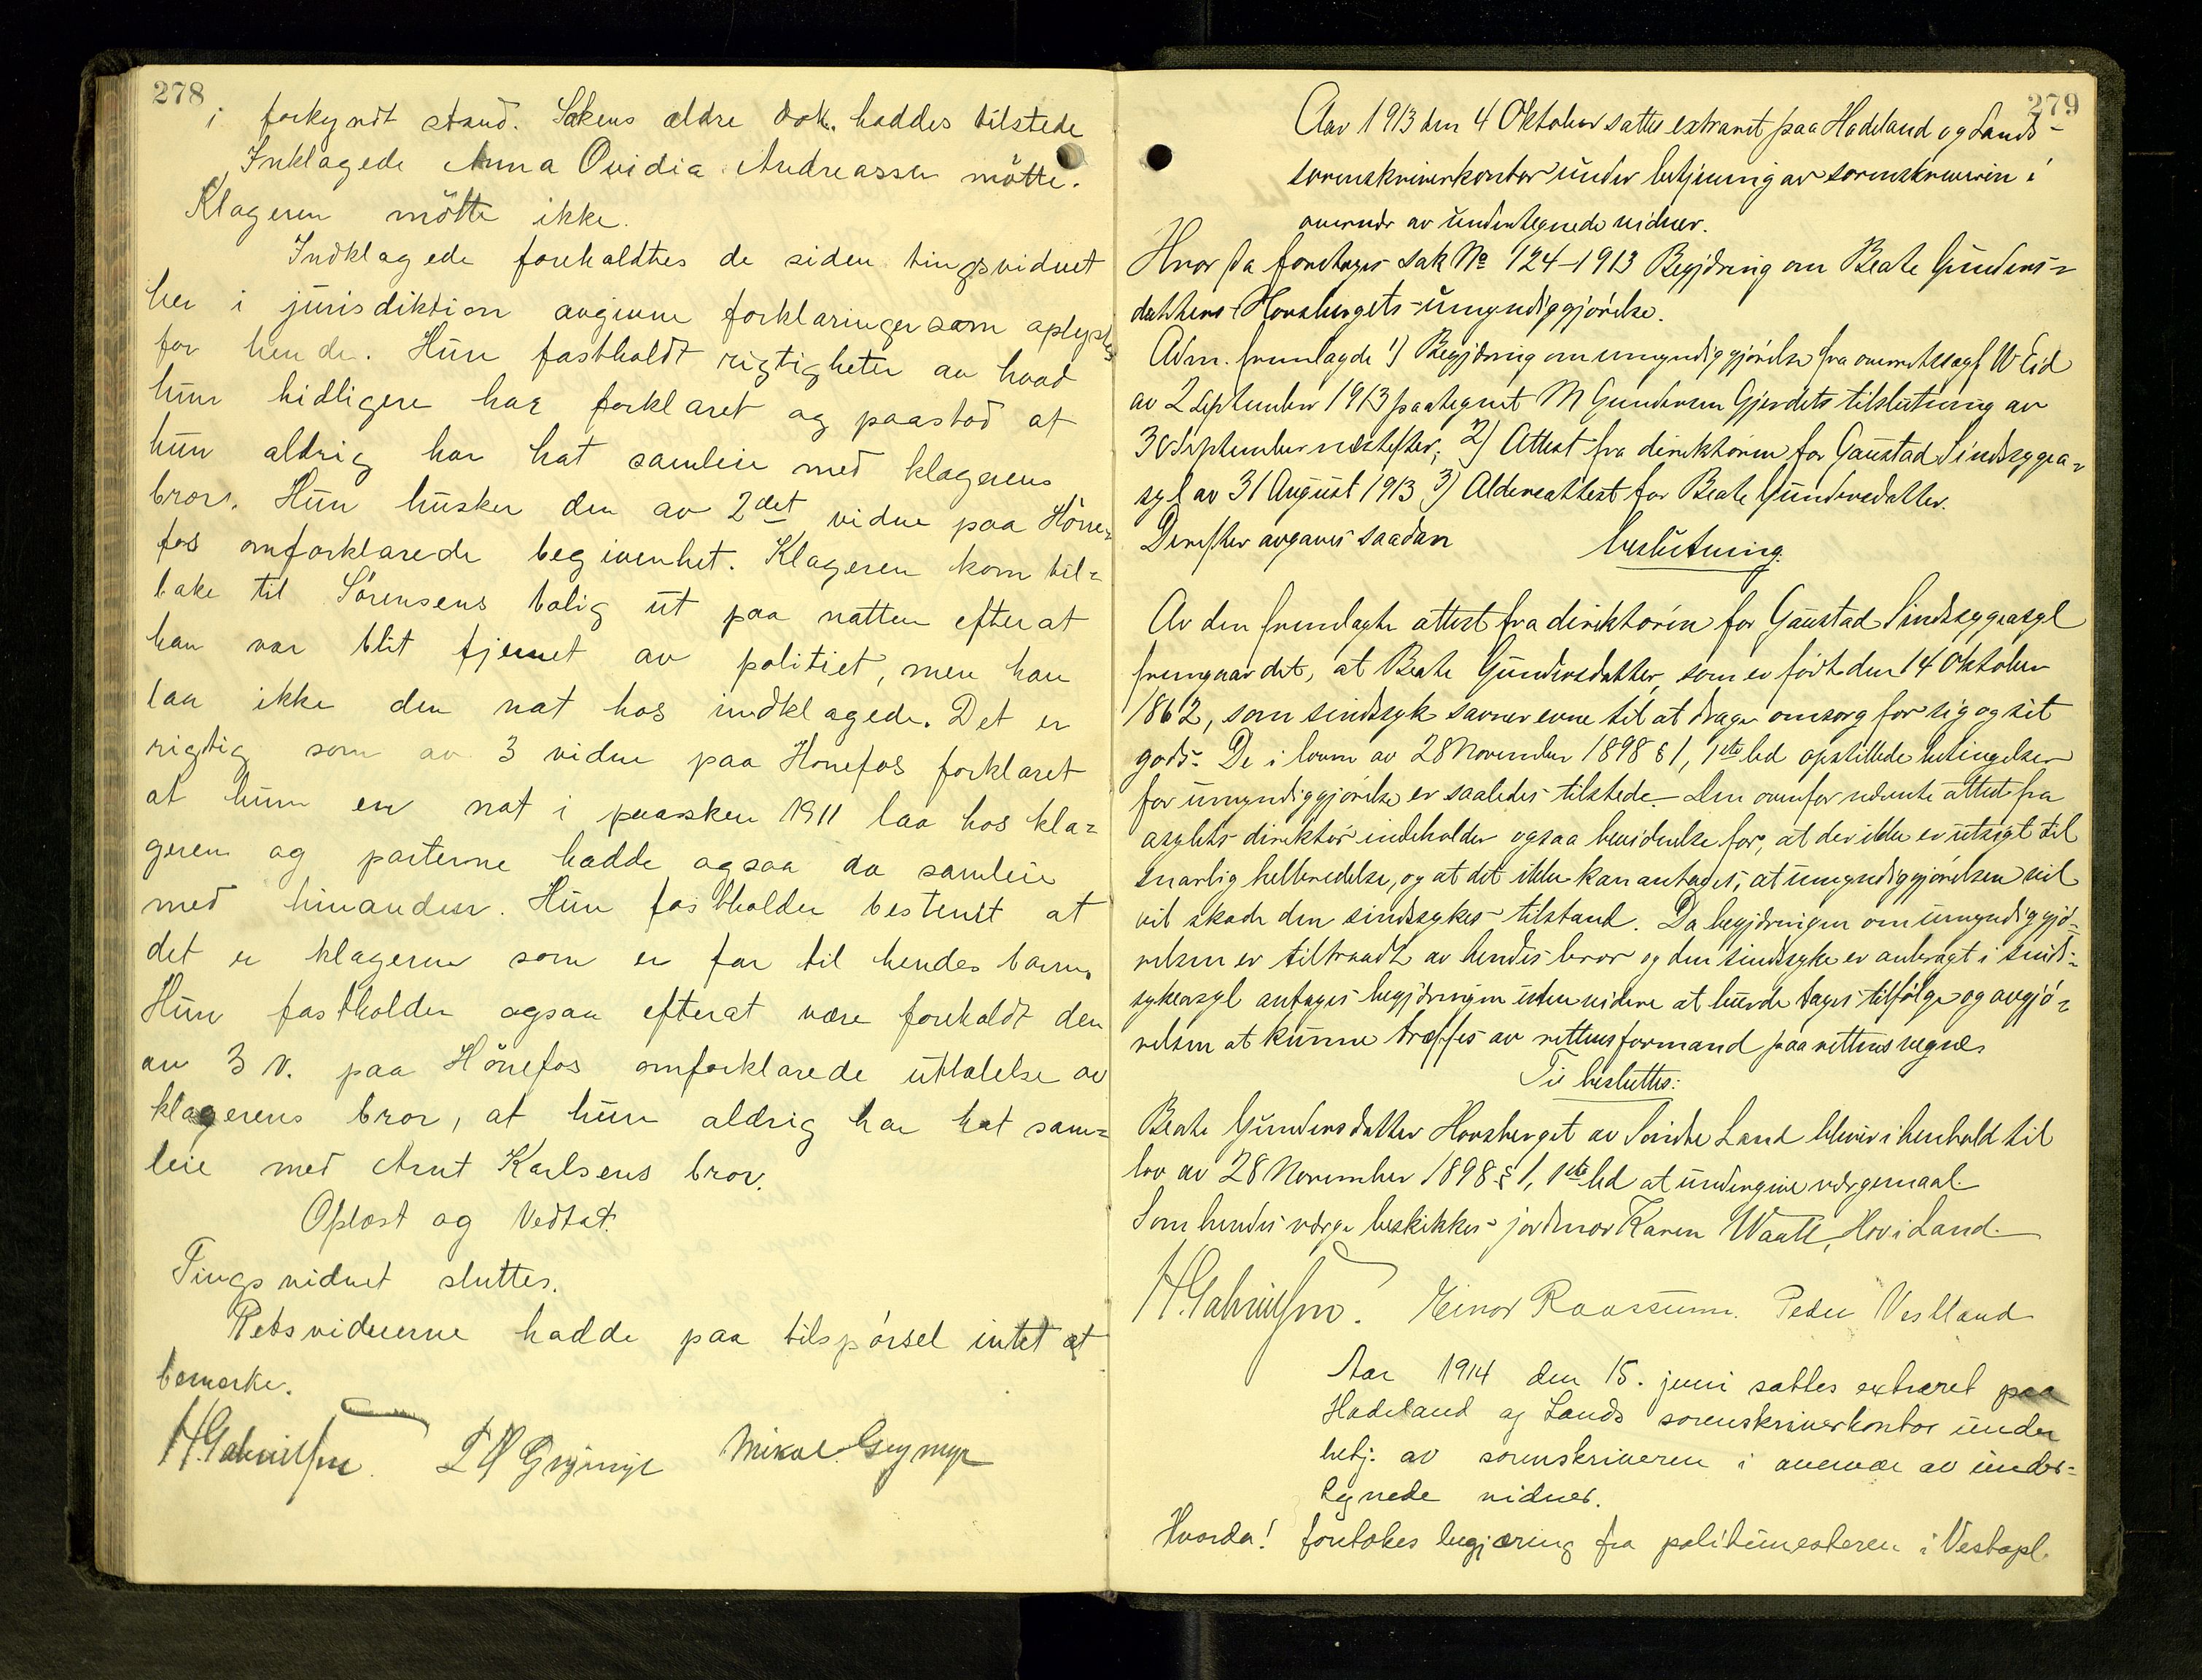 278
i forkyndt stand. Sakens ældre dok. haddes tilstede
Inklagede Anna Ovidia Andreassen mötte.
Klageren mötte ikke.
Indklagede foreholdtes de siden tingsvidnet
her i jurisdiktion avgivne forklaringer som oplystes
for hende. Hun fastholdt rigtigheten av hvad
hun tidligere har forklaret og paastod at
hun aldrig har hat samleie med klagerens
bror. Hun husker den av 2det vidne paa Höne-
fos omforklarede begivenhet. Klageren kom til-
bake til Sörensens bolig ut paa natten efterat
han var blit fjernet av politiet, men han
laa ikke den nat hos indklagede. Det er
rigtig som av 3 vidne paa Hönefos forklaret
at hun en nat i paasken 1911 laa hos kla-
geren og parterne hadde ogsaa da samleie
med hinanden. Hun fastholder bestemt at
det er klageren som er far til hendes barn.
Hun fastholder ogsaa efterat være foreholdt den
av 3 v. paa Hönefos omforklarede uttalelse av
klagerens bror, at hun aldrig har hat sam-
leie med Arnt Karlsens bror.
Oplæst og Vedtat.
Tingsvidnet sluttes.
Retsvidnerne hadde paa tilspörsel intet at
bemerke.
279
Aar 1913 den 4 Oktober sattes extraret paa Hadeland og Lands
sorenskriverkontor under betjening av sorenskriveren i
overvær av undertegnede vidner.
Hvor da foretages sak No 124-1913 Begjæring om Beate Gunders-
datters Hovsbergets umyndiggjörelse.
Adm. fremlagde 1) Begjæring om umyndiggjörelse fra overretssagf W Eid
av 2 September 1913 paategnet M Gundersen Gjerdets tilslutning av
30 September næstefter; 2) Attest fra direktören for Gaustad Sindssygea-
syl av 31 August 1913 3) Aldersattest for Beate Gundersdatter.
Derefter avgaves saadan beslutning.
Av den fremlagte attest fra direktören for Gaustad Sindssygeasyl
fremgaar det, at Beate Gundersdatter, som er födt den 14 Oktober
1862, som sindssyk savner evne til at drage omsorg for sig og sit
gods. De i loven av 28 November 1898 § 1, 1ste led opstillede betingelser
for umyndiggjörelse er saaledes tilstede. Den ovenfor nævnte attest fra
asylets direktör indeholder ogsaa bevidnelse for, at der ikke er utsigt til
snarlig helbredelse, og at det ikke kan antages, at umyndiggjörelsen vil
vil skade den sindssykes tilstand. Da begjæringen om umyndiggjö-
relsen er tiltraadt av hendes bror og den sindssyke er anbragt i sinds-
sykeasyl antages begjæringen uten videre at burde tages tilfölge og avgjö-
relsen at kunne træffes av rettens formand paa rettens vegne.
Ti besluttes:
Beate Gundersdatter Hovsberget av Söndre Land bliver i henhold til
lov av 28 November 1898 § 1, 1ste led at undergive værgemaal.
Som hendes værge beskikkes jordmor Karen Waatt, Hov i Land.
Einar Raassum. Peder Vestland
Aar 1914 den 15. juni sattes extraret paa
Hadeland og Lands sorenskriverkontor under
betj. av sorenskriveren i overvær av under-
tegnede vidner.
Hvorda! foretokes begjæring fra politimesteren i Vestopl.